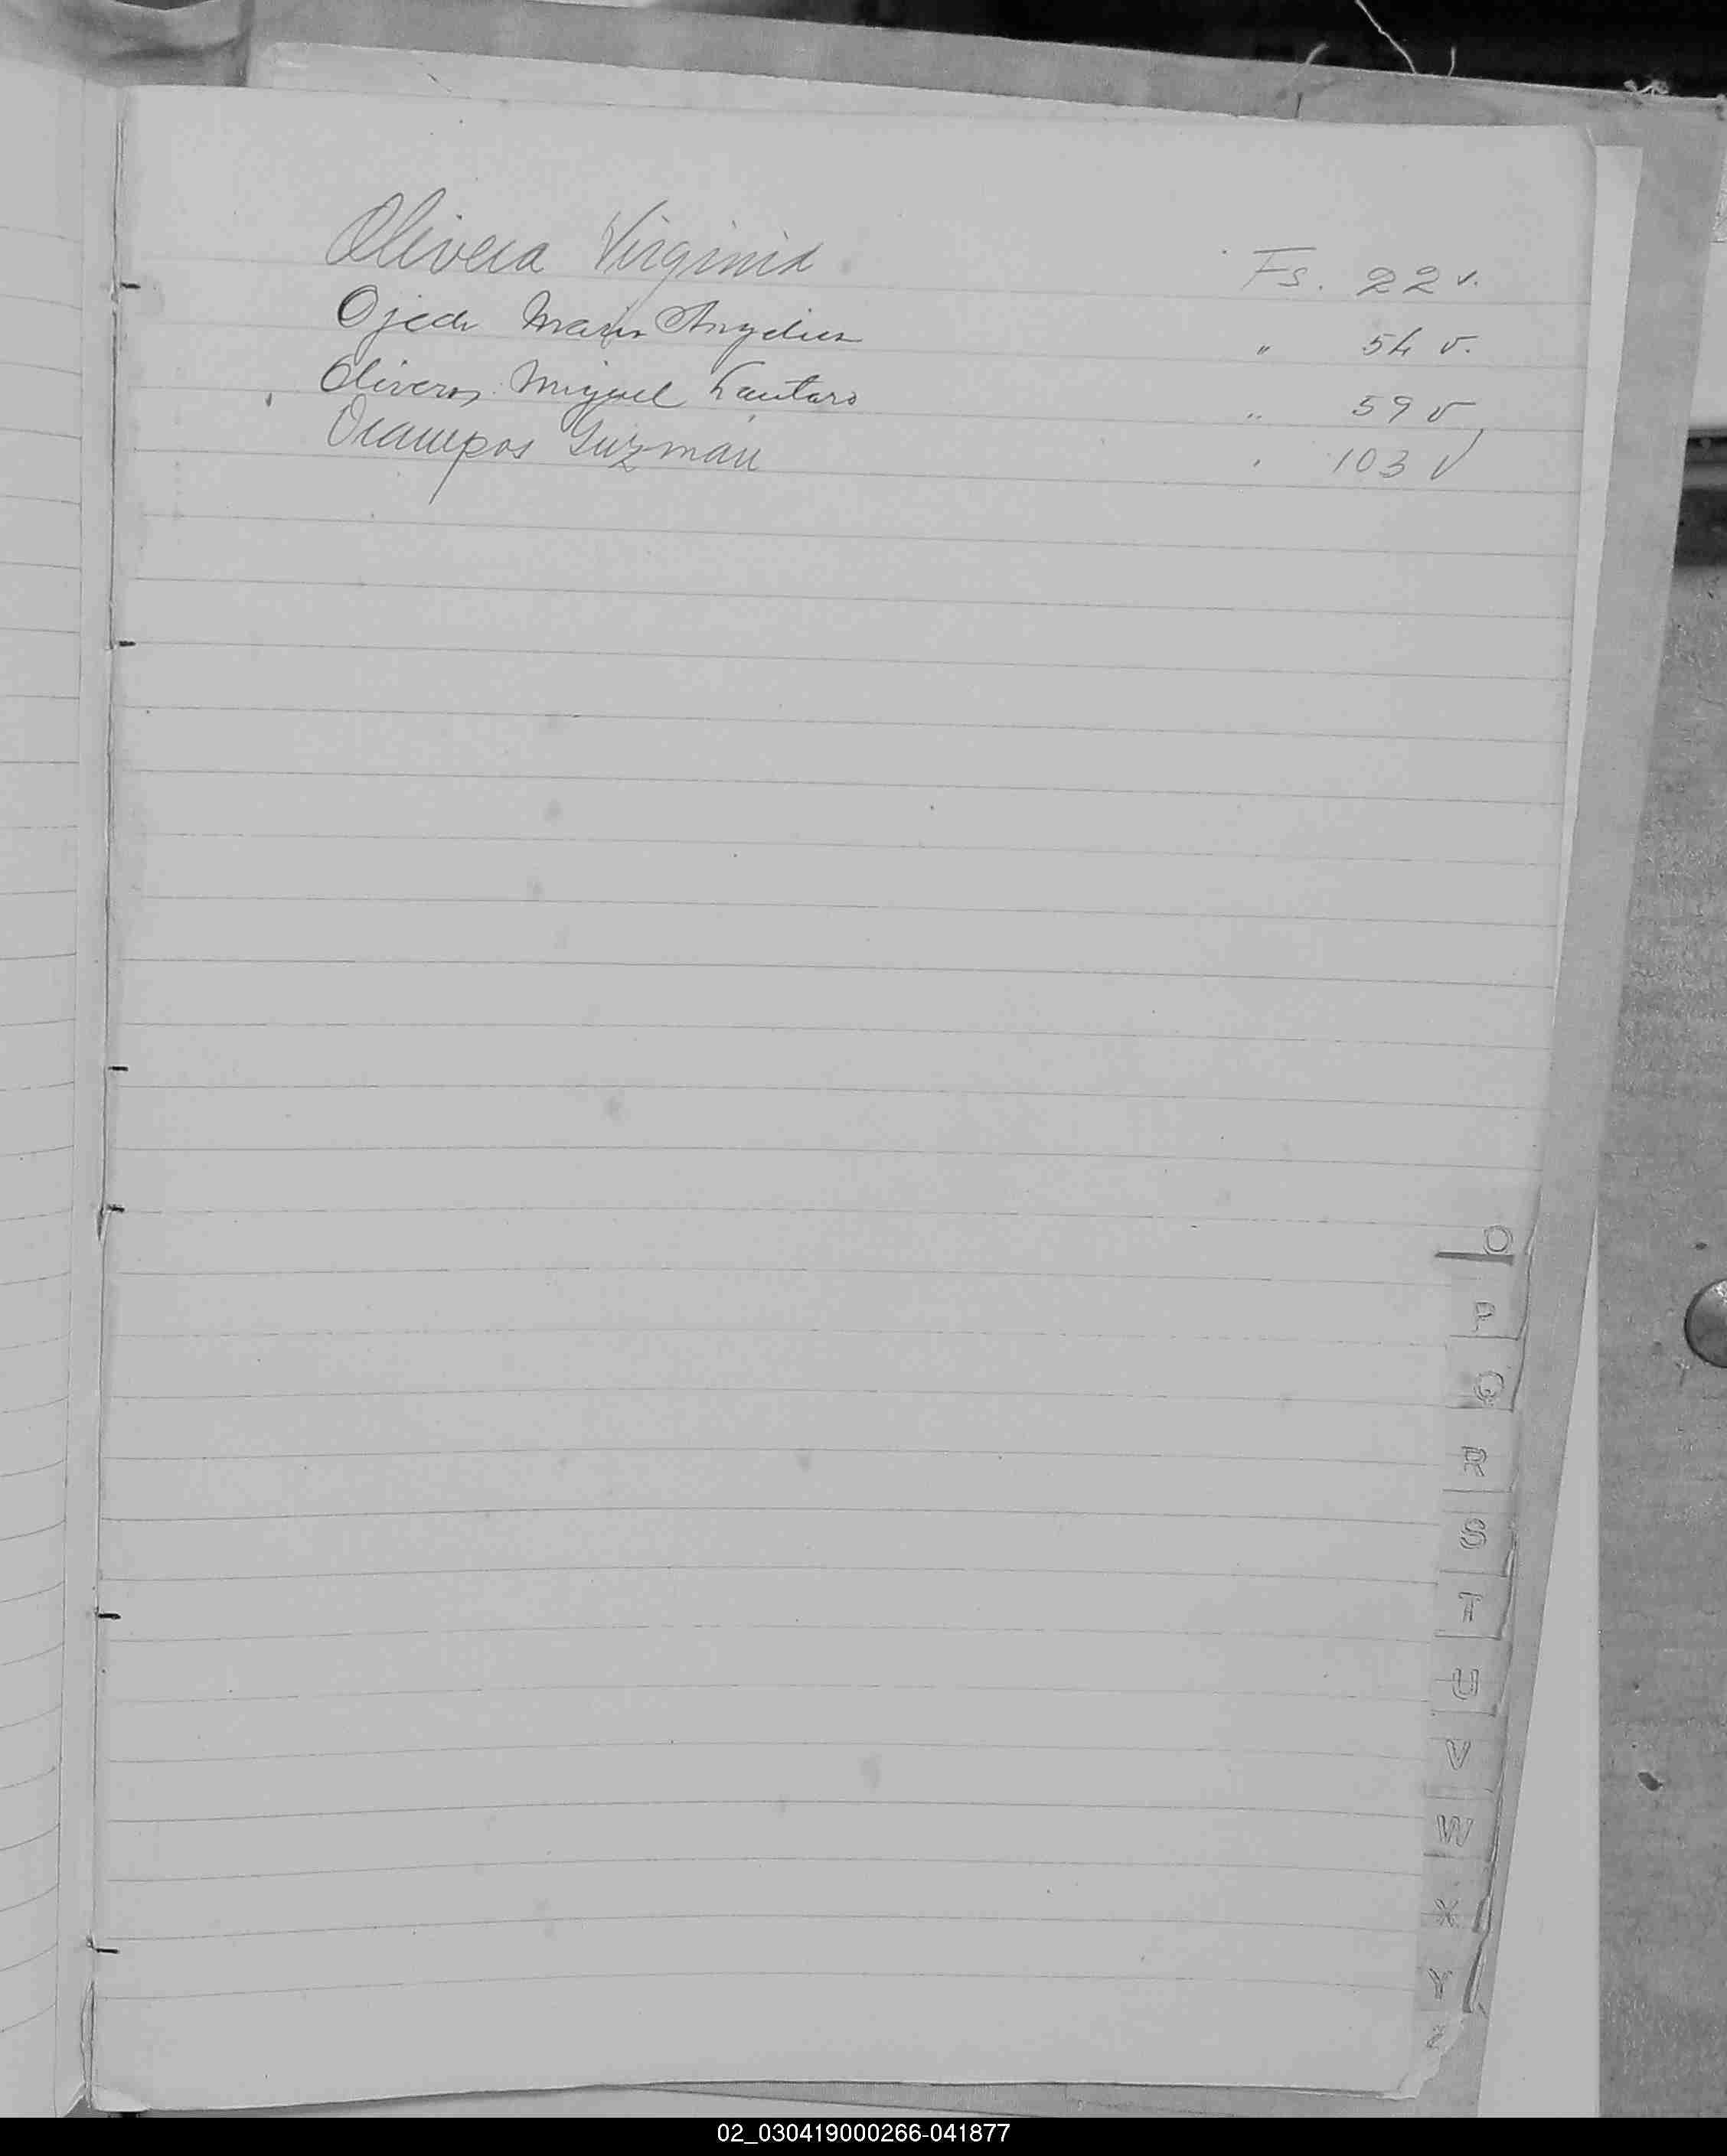 Olivera Virginia Fs. 22 v.
Ojeda Maria Angelica " 54 v.
Oliveros Miguel Lautaro " 59 v
Ocampos Guzmán " 103 v
O
P
Q
R
S
T
U
V
W
X
Y
Z
02_030419000266-041877